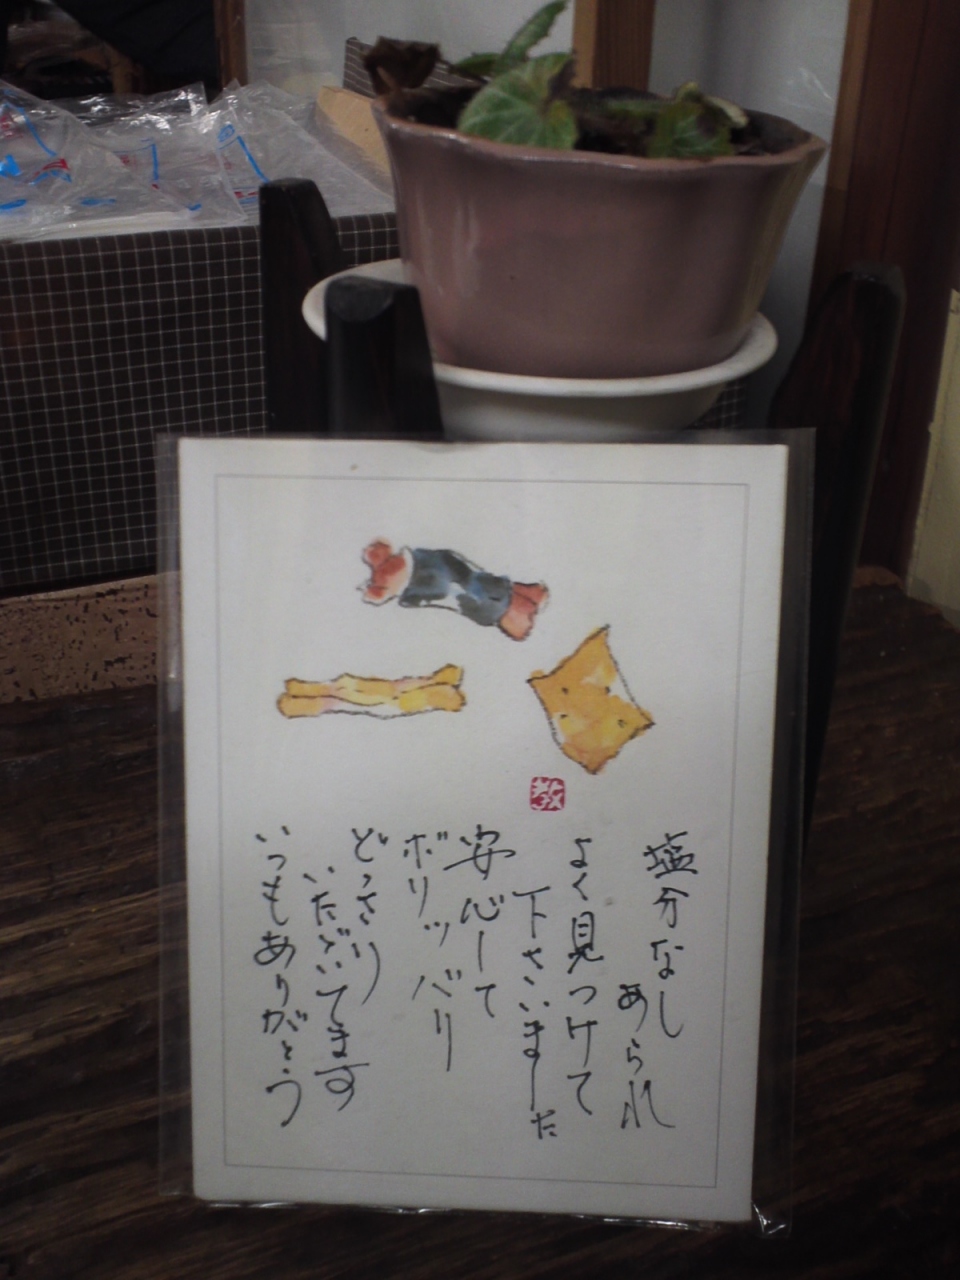 塩分なし
あられ
よく見つけて
下さいました
安心して
ボリッバリ
どっさり
いただいてます
いつもありがとう